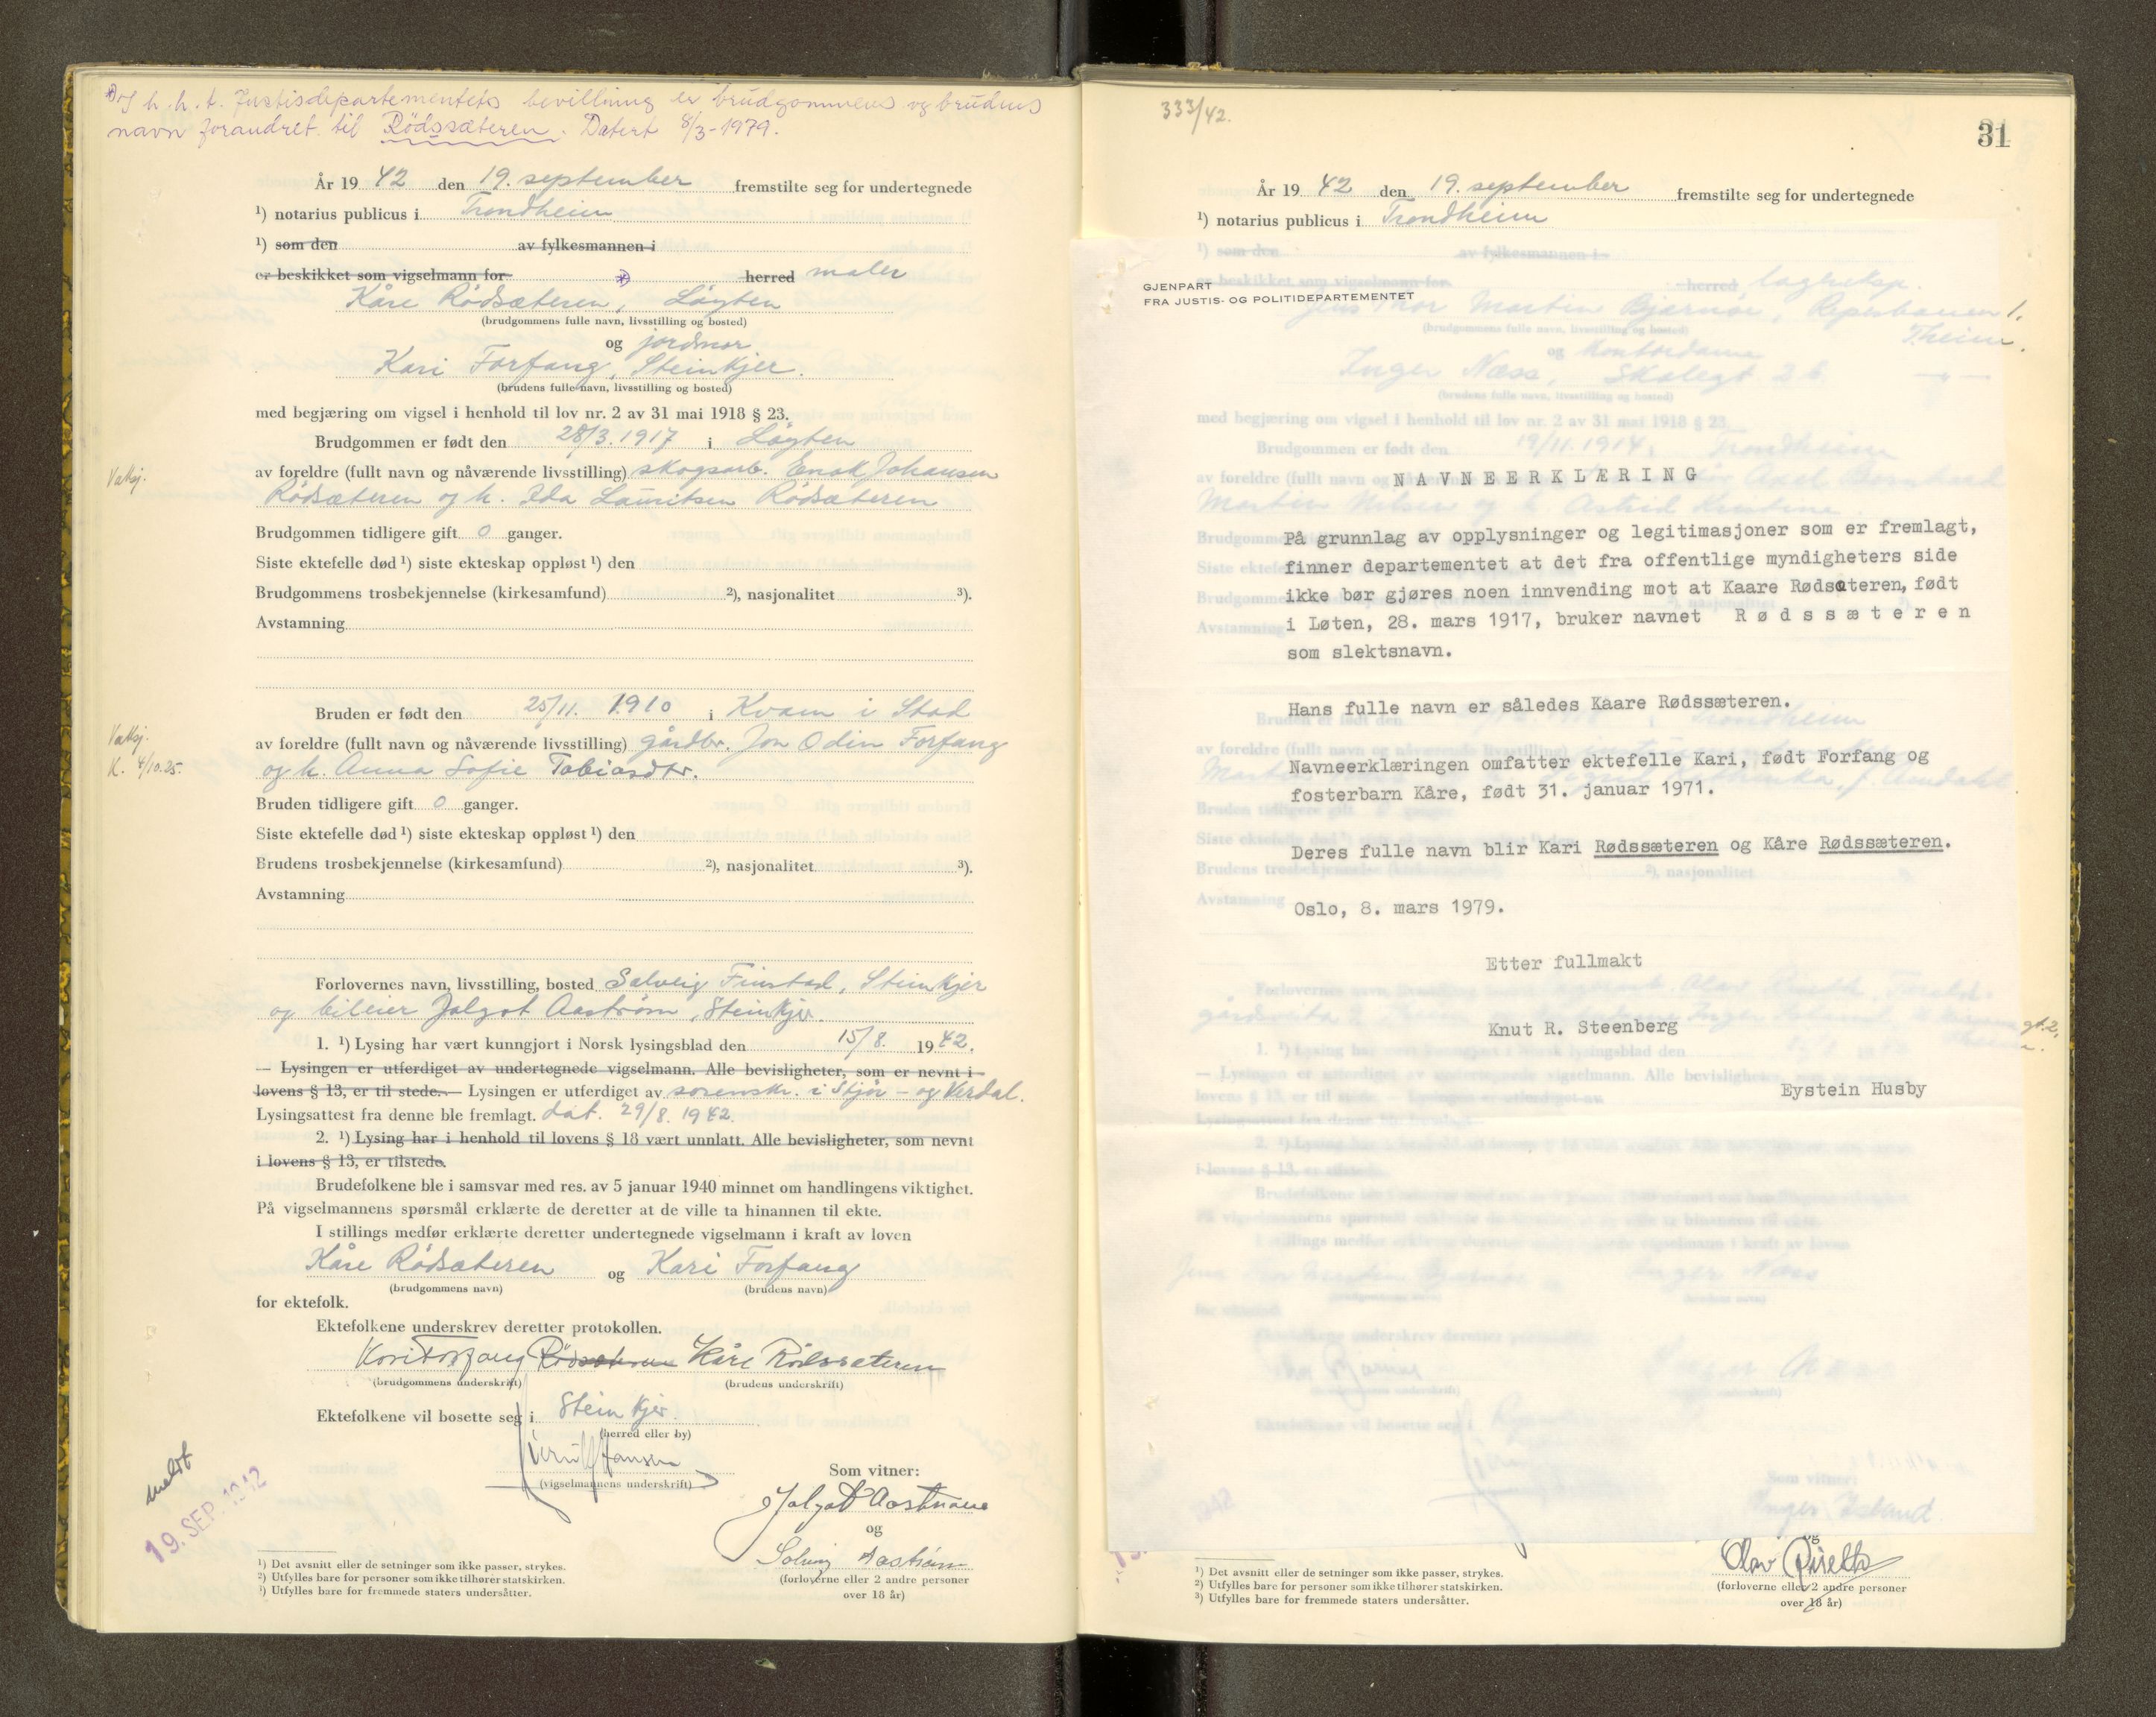 *) I h. h. t. Justisdepartementets bevillning er brudgommens og brudens
navn forandret til Rödssæteren. Datert 8/3-1979.
År 19 42 den 19. september fremstilte seg for undertegnede
¹) notarius publicus i Trondheim
¹) som den av fylkesmannen i
er beskikket som vigselmann for *) herred maler
Kåre Rødsæteren, Løyten
(brudgommens fulle navn, livsstilling og bosted)
og jordmor
Kari Forfang, Steinkjer.
(brudens fulle navn, livsstilling og bosted)
med begjæring om vigsel i henhold til lov nr. 2 av 31 mai 1918 § 23.
Brudgommen er født den 28/3.1917 i Løyten
Vattsj.
av foreldre (fullt navn og nåværende livsstilling) skogsarb. Enok Johansen
Rødsæteren og h. Ida Lauritsen Rødsæteren
Brudgommen tidligere gift 0 ganger.
Siste ektefelle død ¹) siste ekteskap oppløst ¹) den
Brudgommens trosbekjennelse (kirkesamfund) ²), nasjonalitet ³).
Avstamning
Bruden er født den 25/11. 1910 i Kvam i Stod
Vattsj.
av foreldre (fullt navn og nåværende livsstilling) gårdbr. Jon Odin Forfang
K. 4/10.25.
og h. Anna Sofie Tobiasdtr.
Bruden tidligere gift 0 ganger.
Siste ektefelle død ¹) siste ekteskap oppløst ¹) den
Brudens trosbekjennelse (kirkesamfund) ²), nasjonalitet ³).
Avstamning
Forlovernes navn, livsstilling, bosted Solveig Finstad, Steinkjer
og bileier Jalgot Aastrøm, Steinkjer.
1. ¹) Lysing har vært kunngjort i Norsk lysingsblad den 15/8. 1942.
— Lysingen er utferdiget av undertegnede vigselmann. Alle bevisligheter, som er nevnt i
lovens § 13, er til stede. — Lysingen er utferdiget av sorenskr. i Stjør- og Verdal.
Lysingsattest fra denne ble fremlagt. dat. 29/8. 1942.
2. ¹) Lysing har i henhold til lovens § 18 vært unnlatt. Alle bevisligheter, som nevnt
i lovens § 13, er tilstede.
Brudefolkene ble i samsvar med res. av 5 januar 1940 minnet om handlingens viktighet.
På vigselmannens spørsmål erklærte de deretter at de ville ta hinannen til ekte.
I stillings medfør erklærte deretter undertegnede vigselmann i kraft av loven
Kåre Rødsæteren og Kari Forfang
(brudgommens navn) (brudens navn)
for ektefolk.
Ektefolkene underskrev deretter protokollen.
Kari Forfang Rødsæteren Kåre Rødssæteren
(brudgommens underskrift) (brudens underskrift)
Ektefolkene vil bosette seg i Steinkjer.
(herred eller by)
Hansen
(vigselmannens underskrift)
meldt
19. SEP. 1942
Som vitner:
Jalgot Aastrøm
og
Solveig Aastrøm
(forloverne eller 2 andre personer
over 18 år)
¹) Det avsnitt eller de setninger som ikke passer, strykes.
²) Utfylles bare for personer som ikke tilhører statskirken.
³) Utfylles bare for fremmede staters undersåtter.
333/42.
31
År 19 42 den 19. september fremstilte seg for undertegnede
¹) notarius publicus i Trondheim
GJENPART
FRA JUSTIS- OG POLITIDEPARTEMENTET
1.
Theim.
NAVNEERKLÆRING
På grunnlag av opplysninger og legitimasjoner som er fremlagt,
finner departementet at det fra offentlige myndigheters side
ikke bør gjøres noen innvending mot at Kaare Rødsæteren, født
i Løten, 28. mars 1917, bruker navnet Rødssæteren
som slektsnavn.
Hans fulle navn er således Kaare Rødssæteren.
Navneerklæringen omfatter ektefelle Kari, født Forfang og
fosterbarn Kåre, født 31. januar 1971.
Deres fulle navn blir Kari Rødssæteren og Kåre Rødssæteren.
Oslo, 8. mars 1979.
Etter fullmakt
Knut R. Steenberg
gt. 2,
Eystein Husby
og
Olav
(forloverne eller 2 andre personer
over 18 år)
¹) Det avsnitt eller de setninger som ikke passer, strykes.
²) Utfylles bare for personer som ikke tilhører statskirken.
³) Utfylles bare for fremmede staters undersåtter.